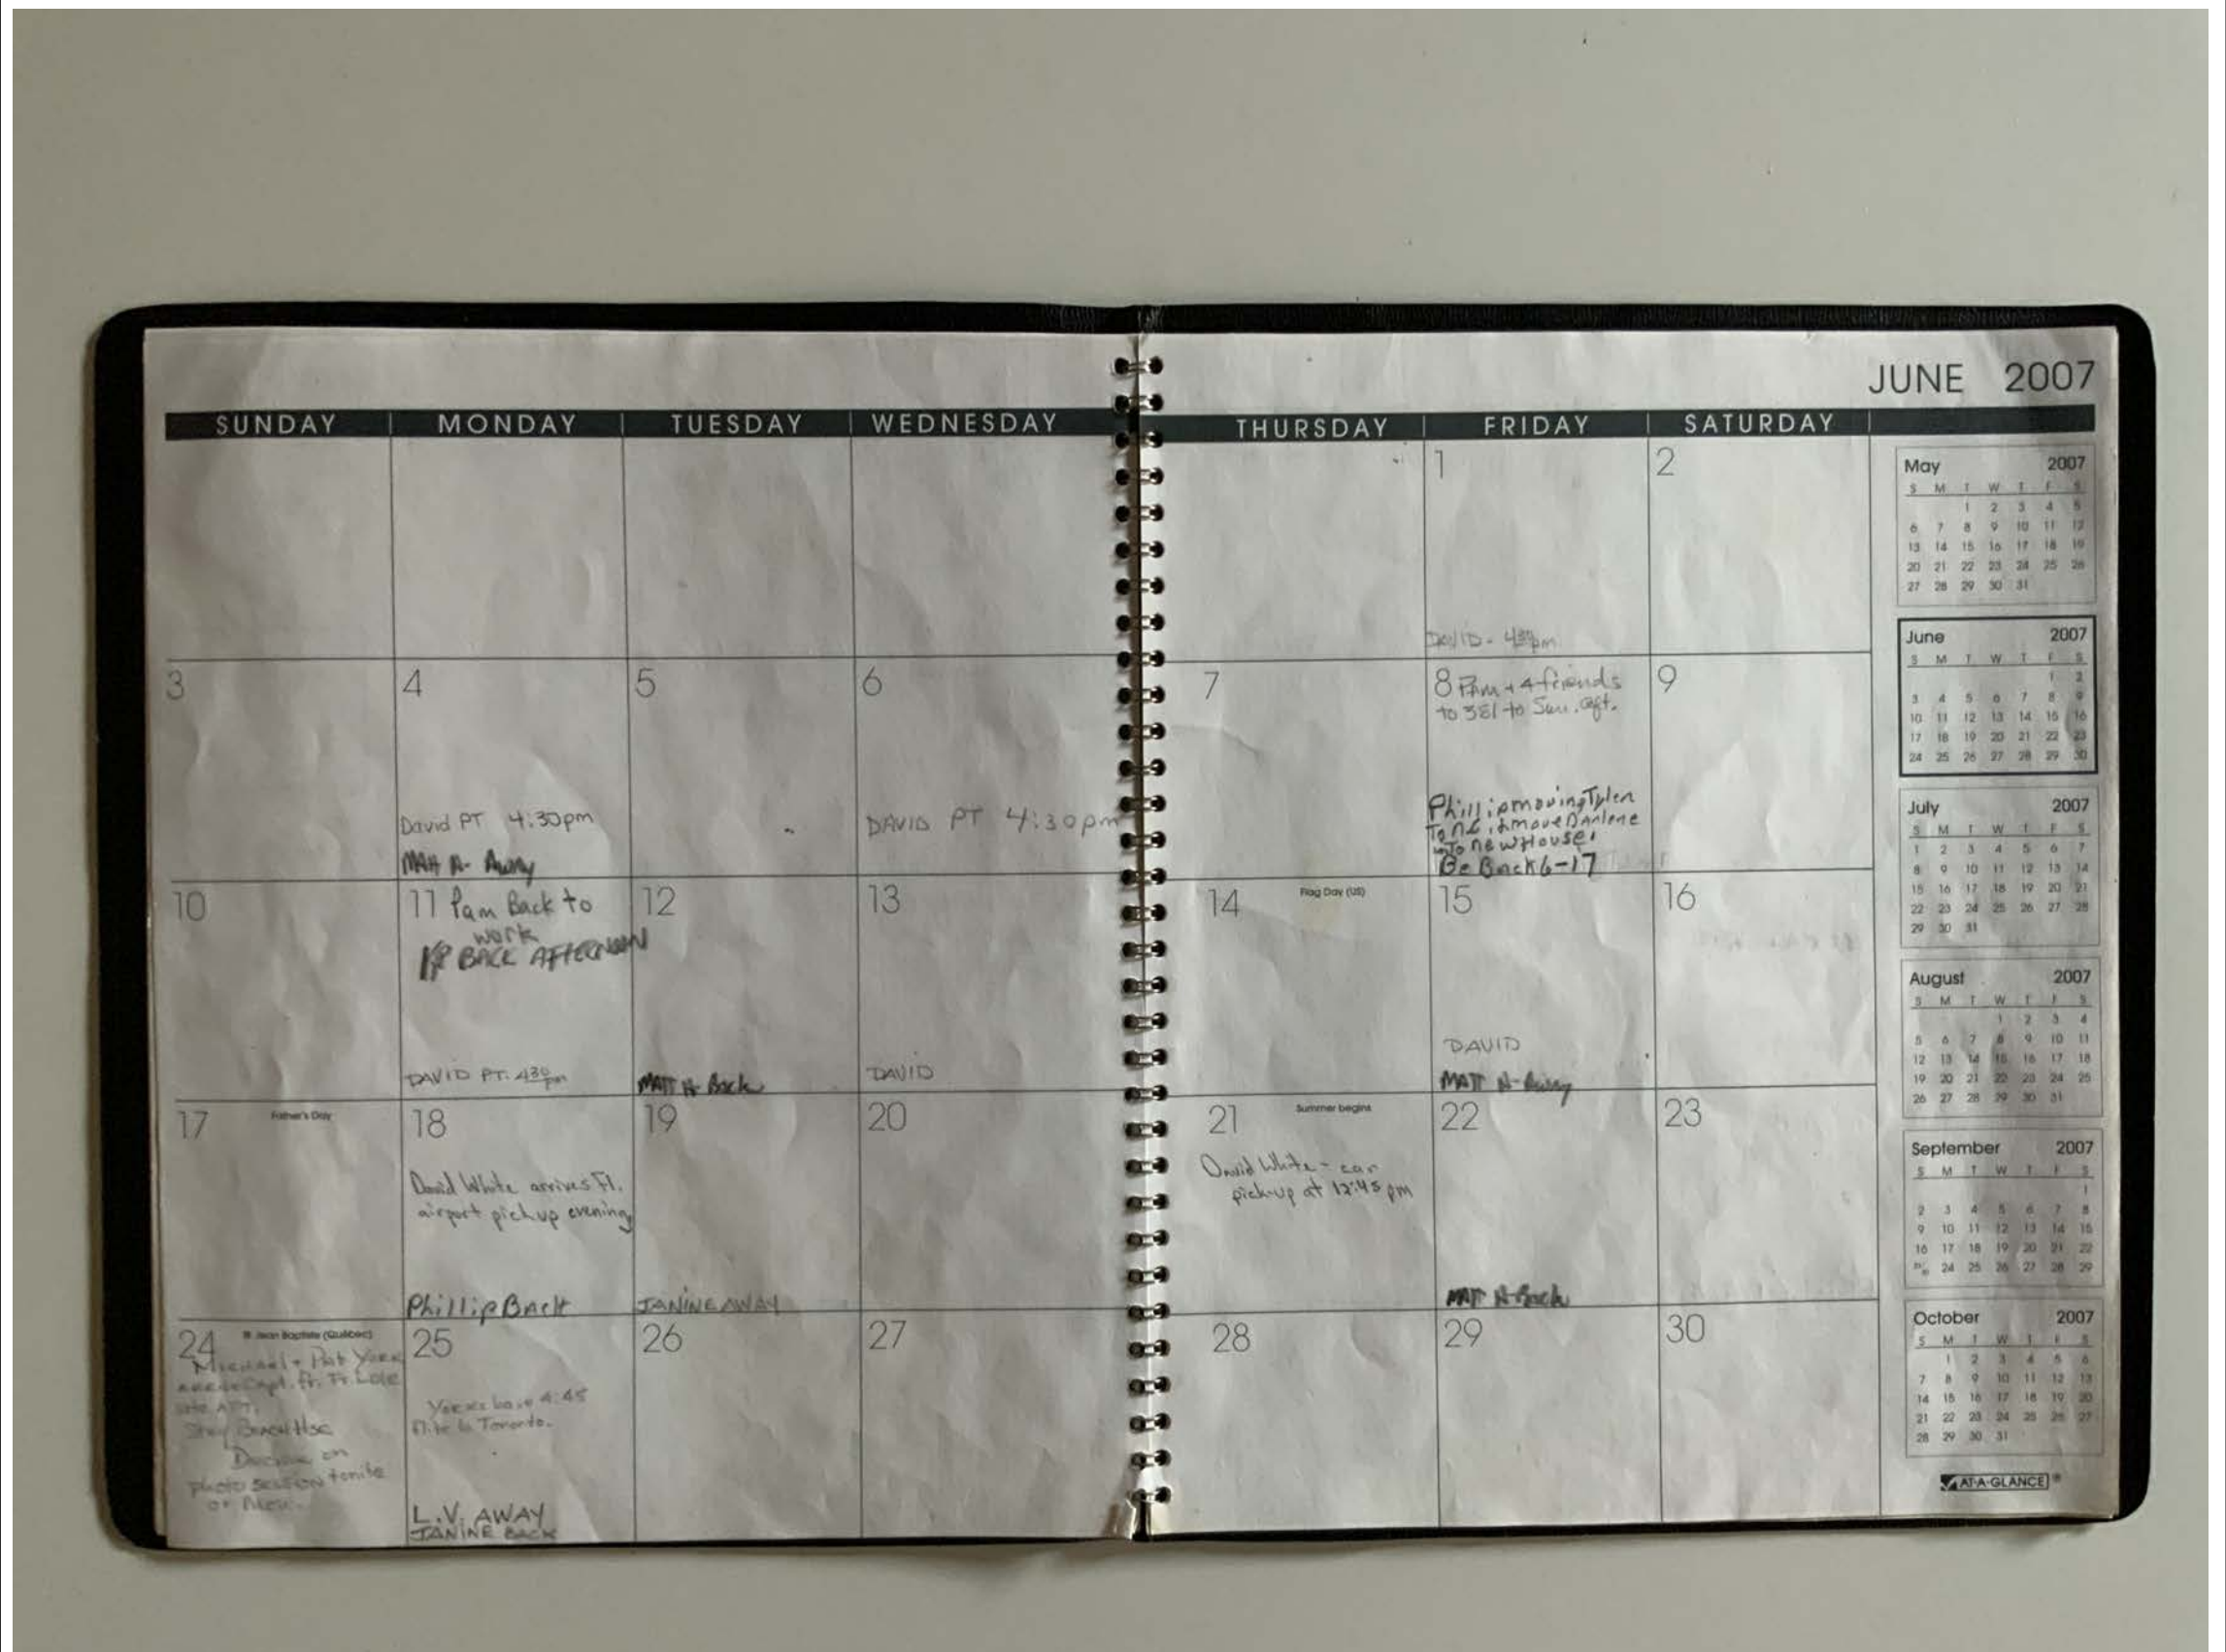 JUNE 2007
SUNDAY MONDAY TUESDAY WEDNESDAY THURSDAY FRIDAY SATURDAY
1
DAVID - 4:30pm
2
3
4
David PT 4:30pm
MATT H- Away
5
6
DAVID PT 4:30pm
7
8 Pam + 4 friends
to 381 to Sun. aft.
Phillip moving Tyler
To move Darlene
To new House.
Be Back 6-17
9
10
11 Pam Back to
work
BACK AFTERNOON
DAVID PT. 4:30pm
12
MATT H- Back
13
DAVID
14 Flag Day (US)
15
DAVID
MATT H- Away
16
17 Father's Day
18
David White arrives Fl.
airport pickup evening
Phillip Back
19
JANINE AWAY
20
21 Summer begins
David White - car
pick-up at 12:45 pm
22
MATT H- Back
23
24 St Jean Baptiste (Québec)
Michael + Pat York
Stay Beach Hse
Decision on
photo session tonite
25
Yorks have 4:45
flite to Toronto.
L.V. AWAY
JANINE BACK
26
27
28
29
30
May 2007
S M T W T F S
1 2 3 4 5
6 7 8 9 10 11 12
13 14 15 16 17 18 19
20 21 22 23 24 25 26
27 28 29 30 31
June 2007
S M T W T F S
1 2
3 4 5 6 7 8 9
10 11 12 13 14 15 16
17 18 19 20 21 22 23
24 25 26 27 28 29 30
July 2007
S M T W T F S
1 2 3 4 5 6 7
8 9 10 11 12 13 14
15 16 17 18 19 20 21
22 23 24 25 26 27 28
29 30 31
August 2007
S M T W T F S
1 2 3 4
5 6 7 8 9 10 11
12 13 14 15 16 17 18
19 20 21 22 23 24 25
26 27 28 29 30 31
September 2007
S M T W T F S
1
2 3 4 5 6 7 8
9 10 11 12 13 14 15
16 17 18 19 20 21 22
23/30 24 25 26 27 28 29
October 2007
S M T W T F S
1 2 3 4 5 6
7 8 9 10 11 12 13
14 15 16 17 18 19 20
21 22 23 24 25 26 27
28 29 30 31
AT-A-GLANCE®